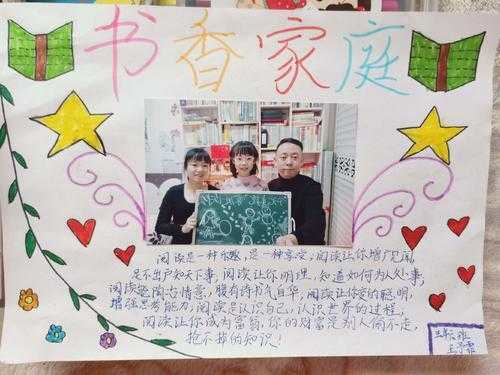 书香家庭
阅读是一种乐趣,是一种享受,阅读让你增广见闻,
足不出户知天下事,阅读让你明理,知道如何为人处事,
阅读能陶冶情意,腹有诗书气自华,阅读让你变的聪明,
增强思考能力,阅读是认识自己,认识世界的过程,
阅读让你成为富翁,你的财富是别人偷不走,
抢不掉的知识!